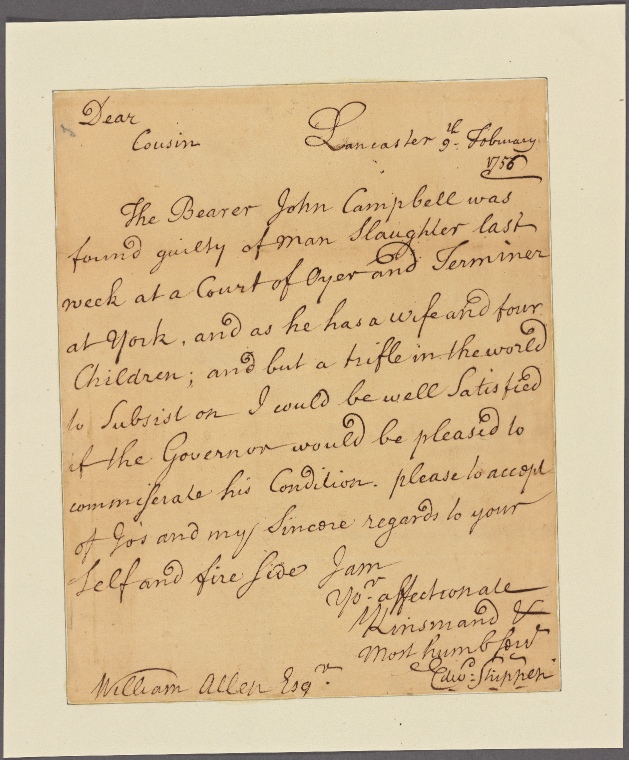 Dear
Cousin
Lancaster 9th February
1756
The Bearer John Campbell was
found guilty of man Slaughter last
week at a Court of Oyer and Terminer
at York, and as he has a wife and four
Children; and but a trifle in the world
to Subsist on I could be well Satisfied
if the Governor would be pleased to
commiserate his Condition. please to accept
of Jo's and my Sincere regards to your
Self and fire side I am
Yor. affectionate
Kinsmand &
Most humb Serv
Edwd. Shippen
William Allen Esqr.